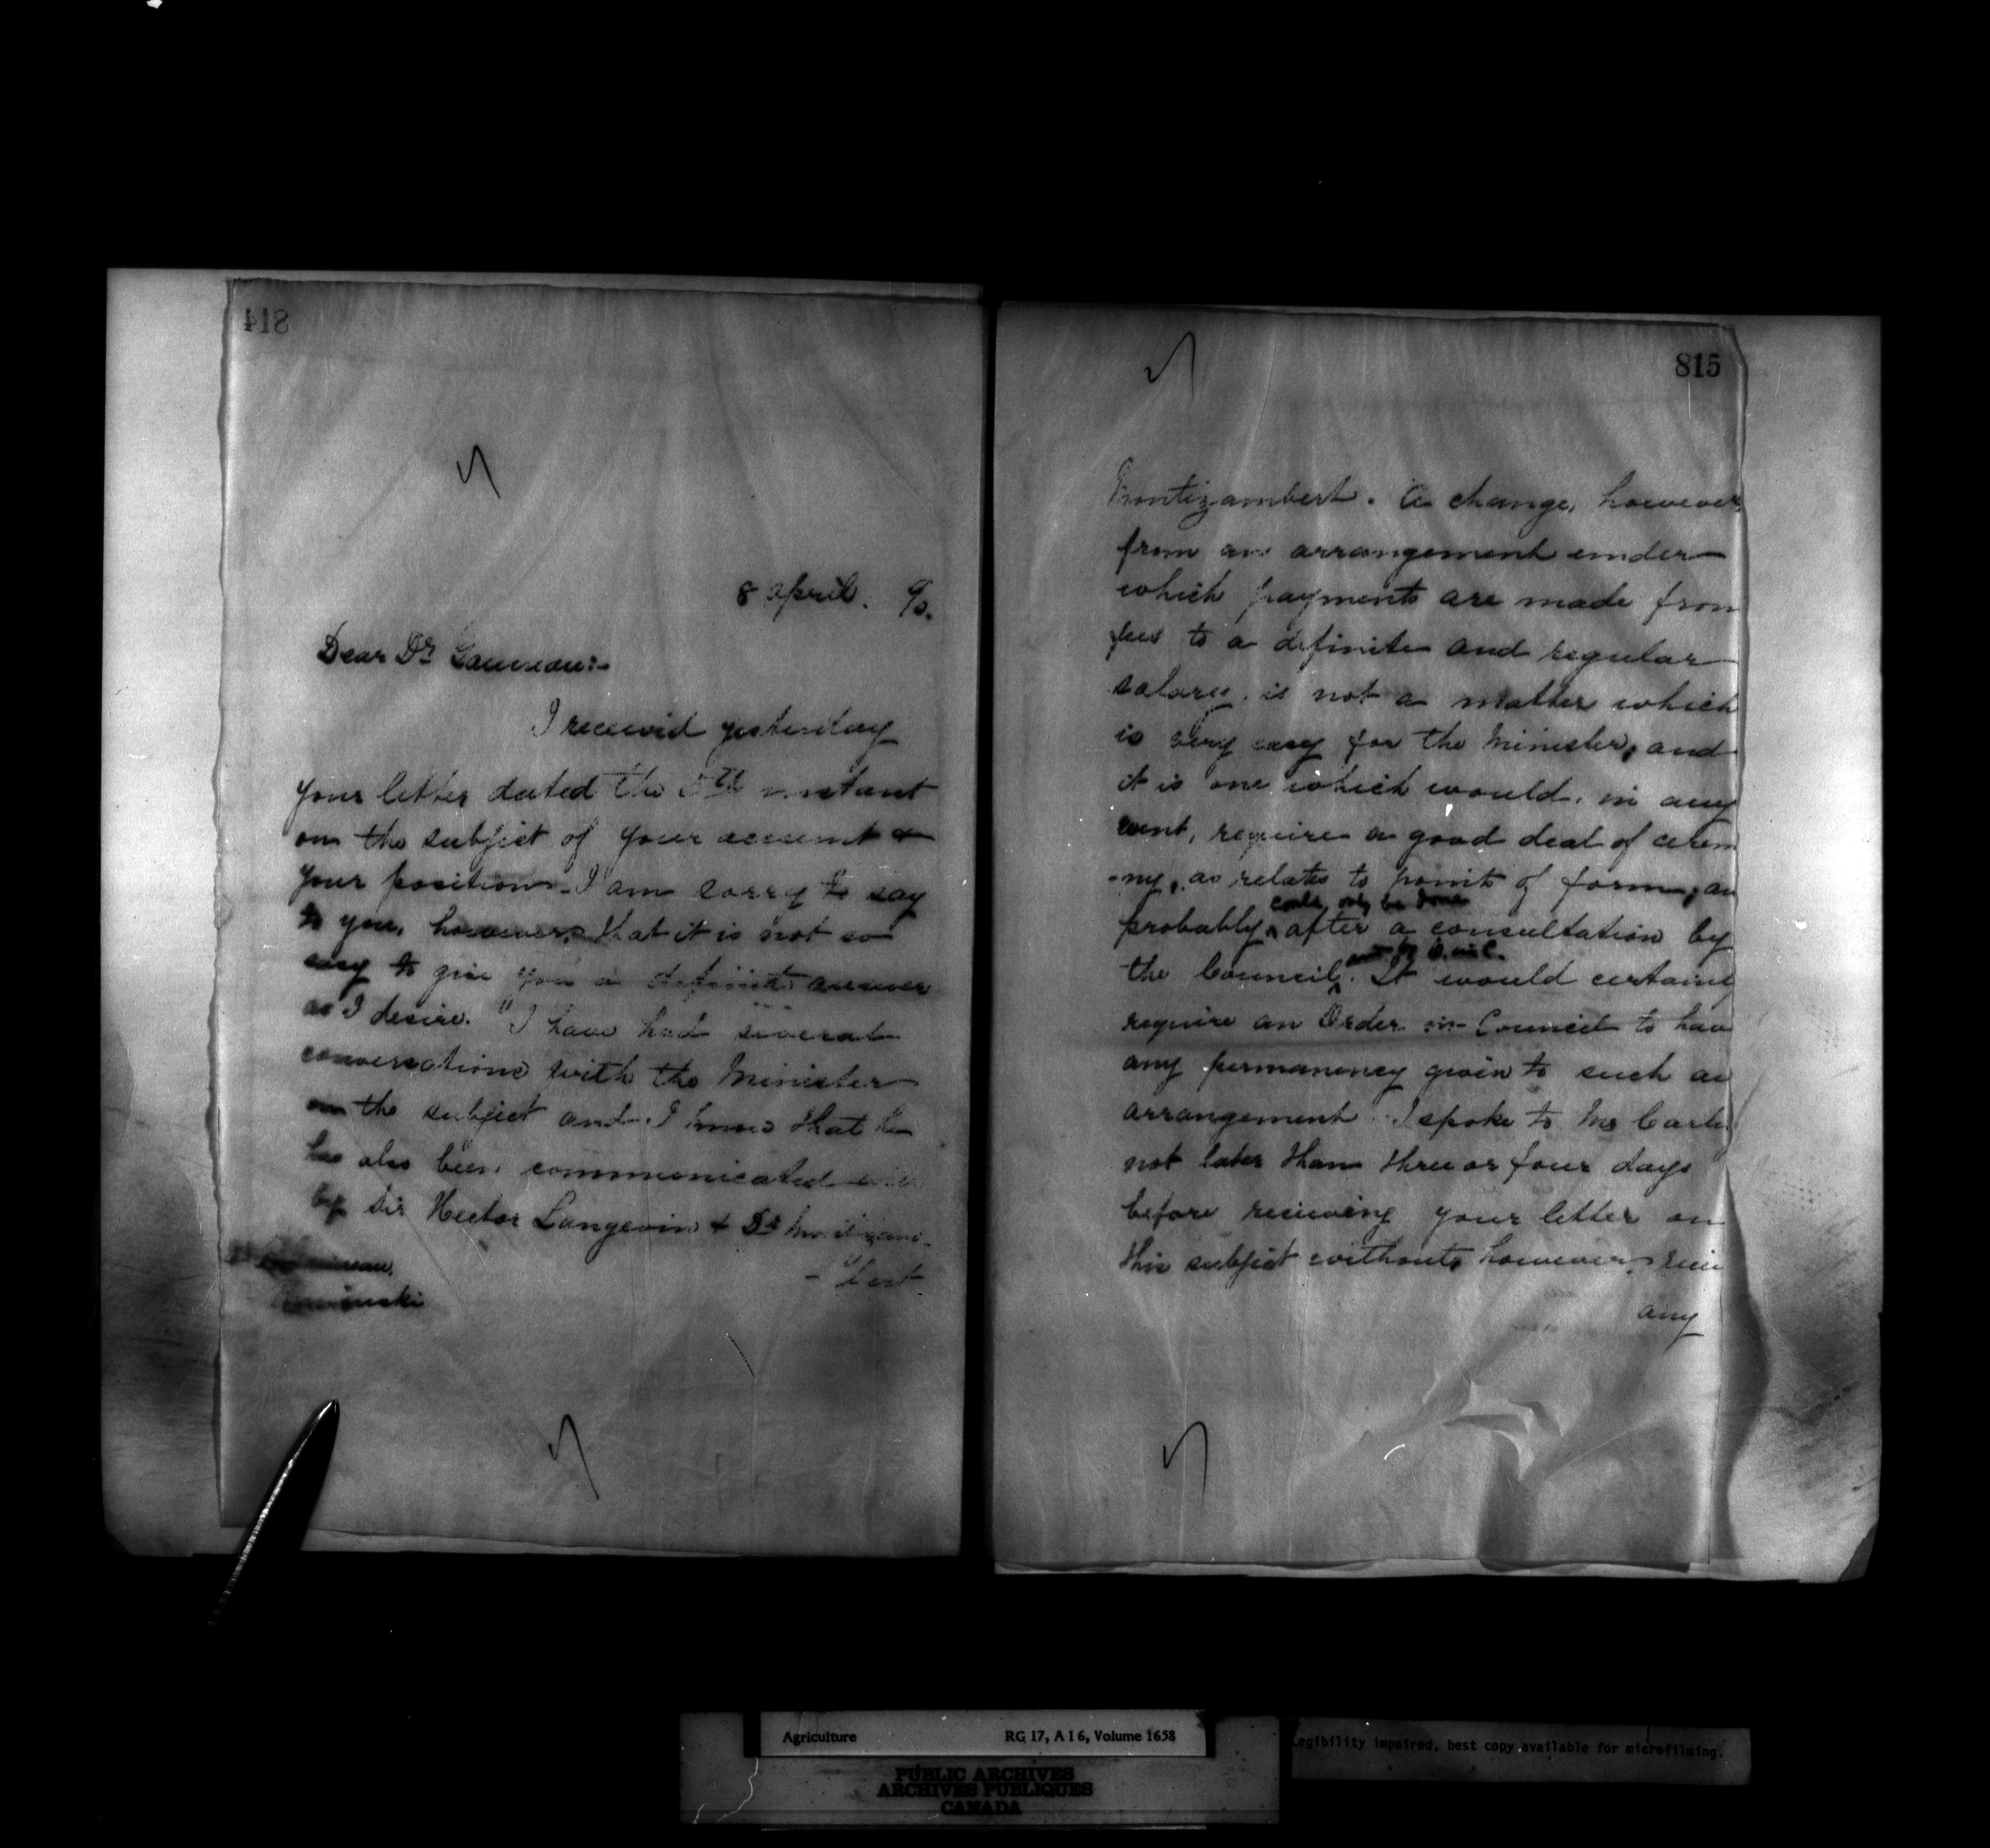 814
8 April. 90.
Dear Dr Gauvreau:-
I received yesterday
your letter dated the 5th instant
on the subject of your account &
your position. I am sorry to say
to you, however, that it is not so
easy to give you a definite answer
as I desire. I have had several
conversations with the Minister
on the subject and I know that he
has also been communicated with
by Sir Hector Langevin & Dr Montizam-
-bert.
815
Montizambert. A change, however,
from an arrangement under
which payments are made from
fees to a definite and regular
salary, is not a matter which
is very easy for the Minister, and
it is one which would, in any
event, require a good deal of cerem
-ny, as relates to points of form, an
could only be done
probably after a consultation by
and by O. in C.
the Council. It would certainly
require an Order in Council to have
any permanency given to such an
arrangement. I spoke to Mr Carling
not later than three or four days
before receiving your letter on
this subject without, however,
any
Agriculture RG 17, A I 6, Volume 1658
Legibility impaired, best copy available for microfilming.
PUBLIC ARCHIVES
ARCHIVES PUBLIQUES
CANADA